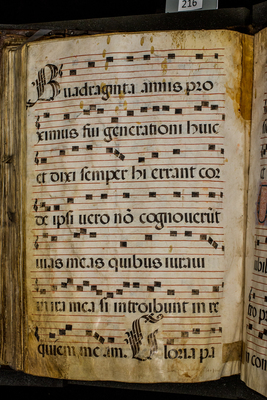 216
Quadraginta annis pro
ximus fui generationi huic
et dixi semper hi errant cor
de ipsi vero nõ cognoverũt
vias meas quibus iuravi
in ira mea si introibunt in re
quiem meam. Gloria pa